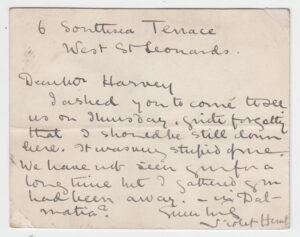 6 Southsea Terrace
West St Leonards.
Dear Mr Harvey
I asked you to come to see
us on Thursday, quite forgetting
that I should be still down
here. It was very stupid of me.
We have not seen you for a
long time but I gathered you
had been away. – in Dal-
matia?
Yours
Violet Hunt